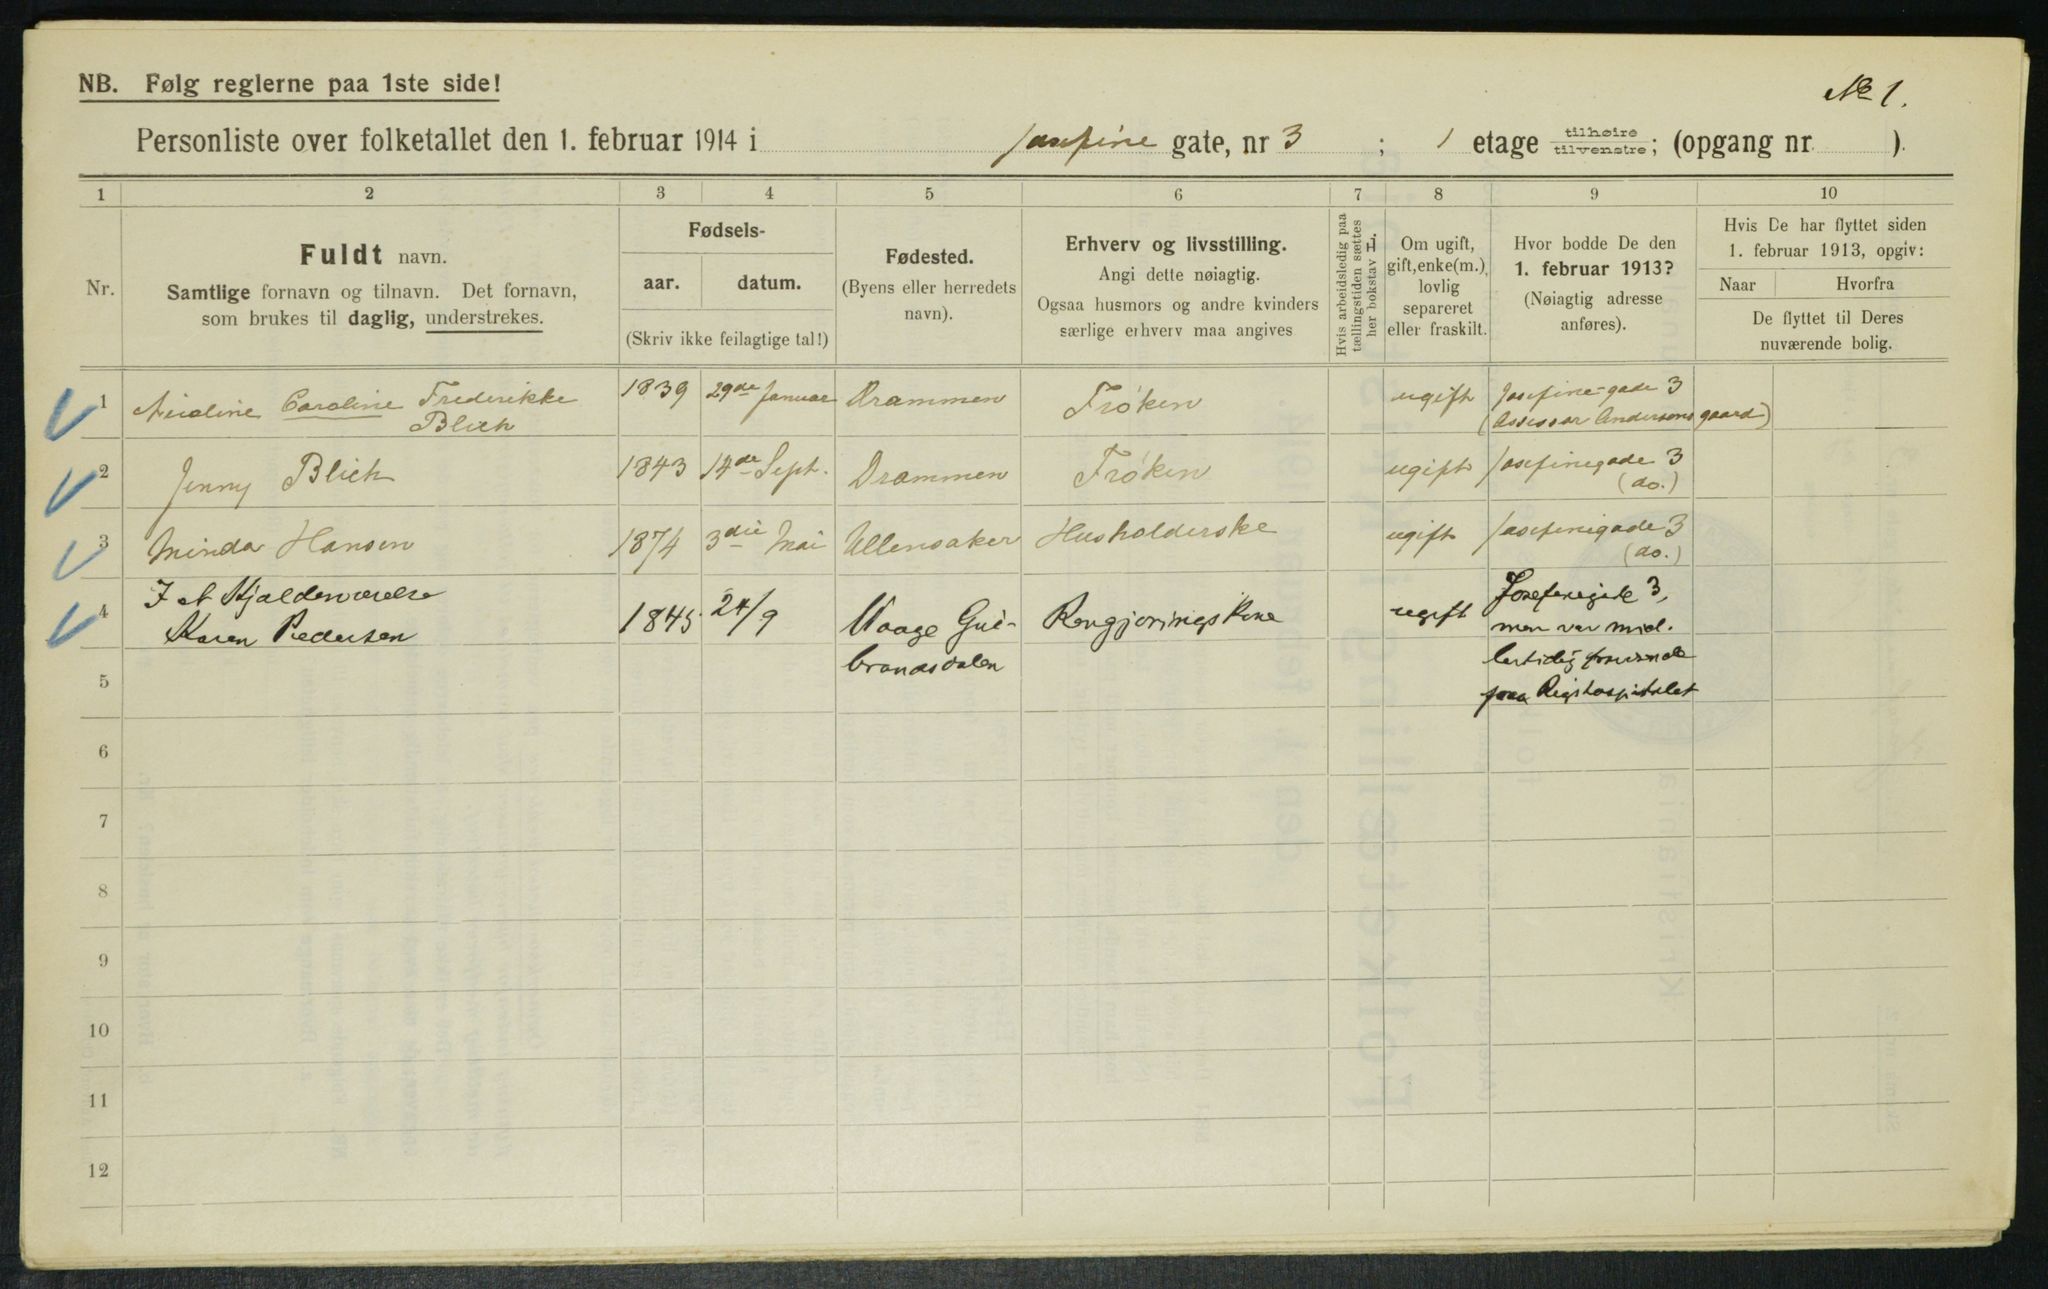 NB. Følg reglerne paa 1ste side!
No 1.
Personliste over folketallet den 1. februar 1914 i Josefine gate, nr 3 ; 1 etage tilhøire tilvenstre; (opgang nr ).
1 2 3 4 5 6 7 8 9 10
Nr.
Fuldt navn.
Samtlige fornavn og tilnavn. Det fornavn,
som brukes til daglig, understrekes.
Fødsels-
aar. datum.
(Skriv ikke feilagtige tal!)
Fødested.
(Byens eller herredets
navn).
Erhverv og livsstilling.
Angi dette nøiagtig.
Ogsaa husmors og andre kvinders
særlige erhverv maa angives
Hvis arbeidsledig paa
tællingstiden sættes
her bokstav L.
Om ugift,
gift, enke(m.),
lovlig
separeret
eller fraskilt.
Hvor bodde De den
1. februar 1913?
(Nøiagtig adresse
anføres).
Hvis De har flyttet siden
1. februar 1913, opgiv:
Naar Hvorfra
De flyttet til Deres
nuværende bolig.
1 Caroline Frederikke 1839 29de Januar Drammen Frøken ugift Josefine-gade 3
Blich (Assessor Andersons gaard)
2 Jenny Blich 1843 14de Sept. Drammen Frøken ugift Josefinegade 3
(do.)
3 Minda Hansen 1874 3die Mai Ullensaker Husholderske ugift Josefinegade 3
(do.)
I et Kjælderværelse
4 Karen Pedersen 1845 24/9 Vaage Gul- Rengjøringskone ugift Josefinegade 3,
men var mid-
brandsdalen lertidig
5 paa Rigshospitalet
6
7
8
9
10
11
12